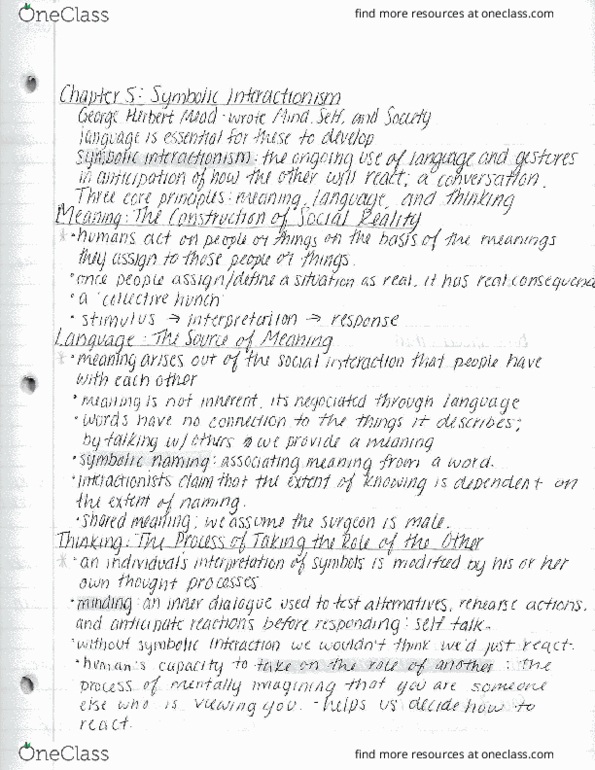 OneClass
find more resources at oneclass.com
Chapter 5: Symbolic Interactionism
George Herbert Mead - wrote Mind, Self, and Society
language is essential for these to develop
Symbolic interactionism: the ongoing use of language and gestures
in anticipation of how the other will react; a conversation.
Three core principles: meaning, language, and thinking
Meaning: The Construction of Social Reality
* • humans act on people or things on the basis of the meanings
they assign to those people or things.
• once people assign/define a situation as real, it has real consequence
• a "collective hunch"
• stimulus → interpretation → response
Language: The Source of Meaning
* • meaning arises out of the social interaction that people have
with each other
• meaning is not inherent, its negociated through language
• words have no connection to the things it describes;
by talking w/ others we provide a meaning
• symbolic naming: associating meaning from a word.
• interactionists claim that the extent of knowing is dependent on
the extent of naming.
• shared meaning: we assume the surgeon is male.
Thinking: The Process of Taking the Role of the Other
* • an individual's interpretation of symbols is modified by his or her
own thought processes
• minding: an inner dialogue used to test alternatives, rehearse actions,
and anticipate reactions before responding: self talk.
• without symbolic interaction we wouldn't think we'd just react.
• human's capacity to take on the role of another: the
process of mentally imagining that you are someone
else who is viewing you. - helps us decide how to
react.
OneClass
find more resources at oneclass.com